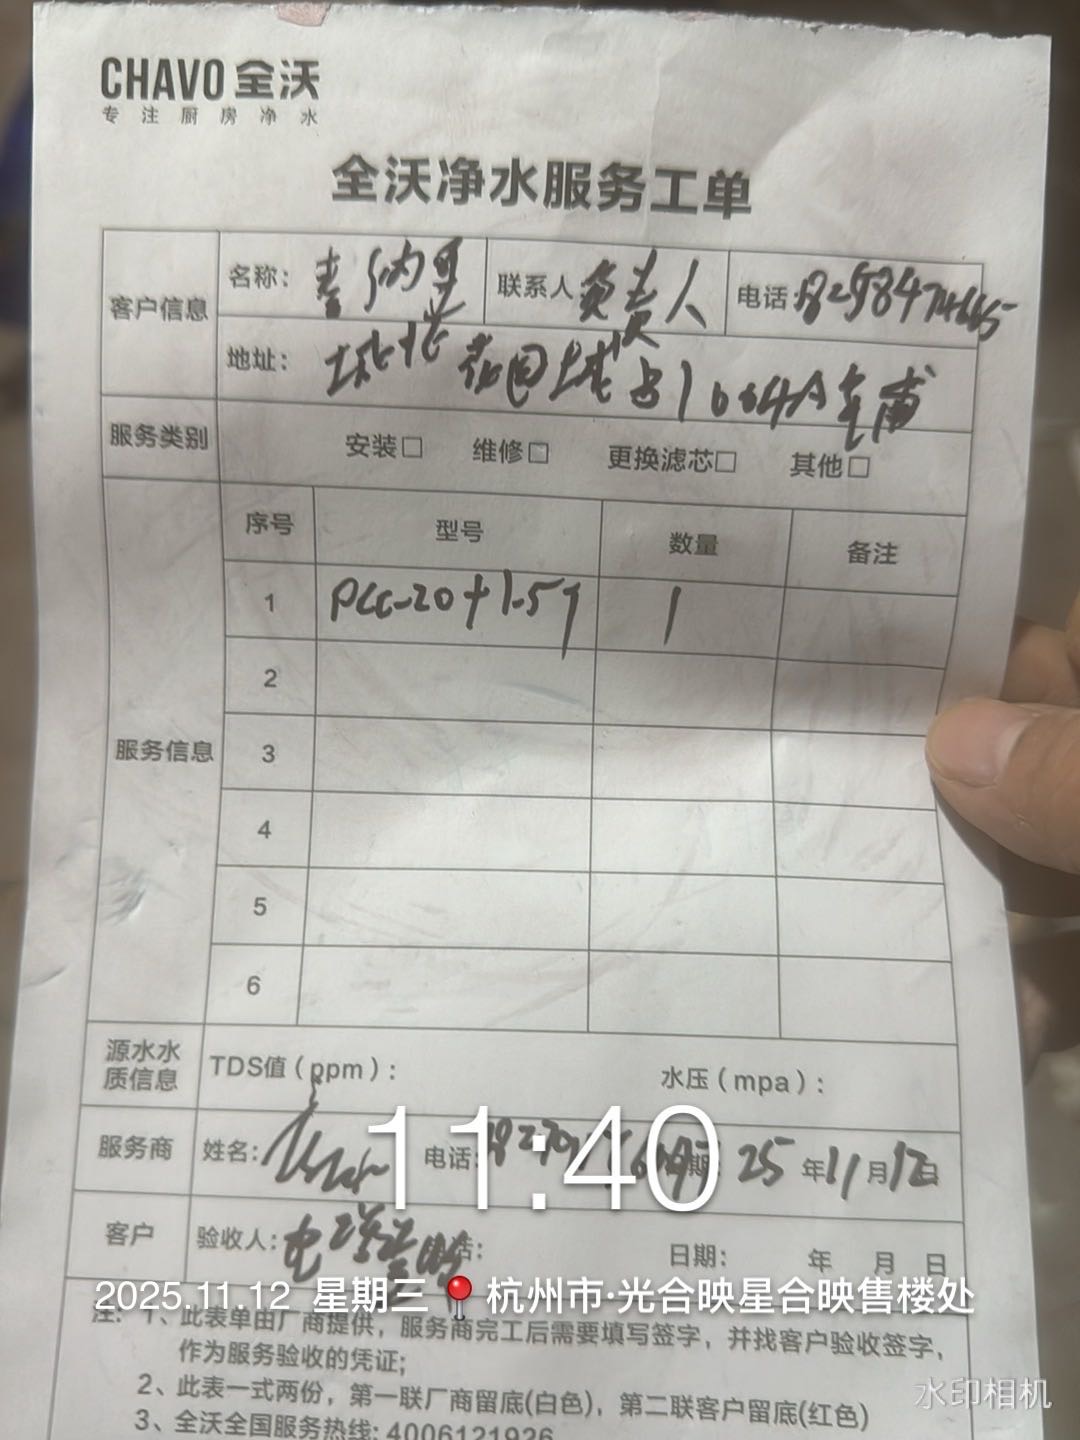 CHAVO 全沃
专注厨房净水
全沃净水服务工单
客户信息 名称： 喜纳里 联系人 负责人 电话：
地址： 城北花园城 1004A
服务类别 安装□ 维修□ 更换滤芯□ 其他□
服务信息 序号 型号 数量 备注
1 PCC-20+1.5T 1
2
3
4
5
6
源水水质信息 TDS值（ppm）： 水压（mpa）：
服务商 姓名： 电话： 期: 25年11月12日
11:40
客户 验收人： 日期： 年 月 日
2025.11.12 星期三 杭州市·光合映星合映售楼处
注: 1、此表单由厂商提供，服务商完工后需要填写签字，并找客户验收签字，
作为服务验收的凭证；
2、此表一式两份，第一联厂商留底(白色)，第二联客户留底(红色)
3、全沃全国服务热线: 4006121926
水印相机